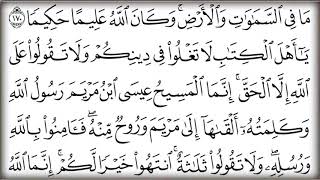 مَا فِي السَّمَٰوَٰتِ وَالْأَرْضِ ۚ وَكَانَ اللَّهُ عَلِيمًا حَكِيمًا ١٧٠
يَا أَهْلَ الْكِتَٰبِ لَا تَغْلُوا۟ فِي دِينِكُمْ وَلَا تَقُولُوا۟ عَلَى
اللَّهِ إِلَّا الْحَقَّ ۚ إِنَّمَا الْمَسِيحُ عِيسَى ابْنُ مَرْيَمَ رَسُولُ اللَّهِ
وَكَلِمَتُهُ ۥ أَلْقَىٰهَا إِلَىٰ مَرْيَمَ وَرُوحٌ مِّنْهُ ۖ فَـَٔامِنُوا۟ بِاللَّهِ
وَرُسُلِهِ ۖ وَلَا تَقُولُوا۟ ثَلَٰثَةٌ ۚ انتَهُوا۟ خَيْرًا لَّكُمْ ۚ إِنَّمَا اللَّهُ